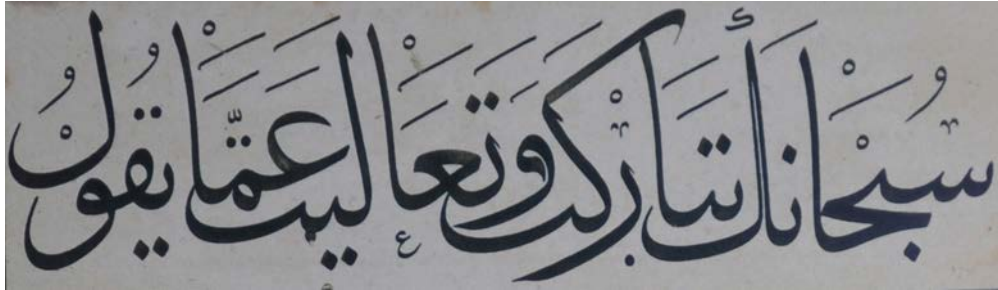 سُبْحَانَكَ تَبَارَكْتَ وَتَعَالَيْتَ عَمَّا يَقُولُ